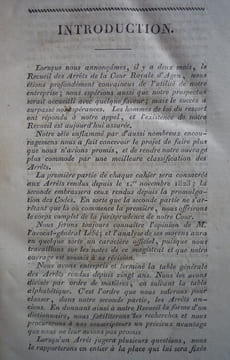 INTRODUCTION.
Lorsque nous annonçâmes, il y a deux mois, le
Recueil des Arrêts de la Cour Royale d'Agen, nous
étions profondément convaincus de l'utilité de notre
entreprise ; nous espérions aussi que notre prospectus
serait accueilli avec quelque faveur ; mais le succès a
surpassé nos espérances. Les hommes de loi du ressort
ont répondu à notre appel, et l'existence de notre
Recueil est aujourd'hui assurée.
Notre zèle enflammé par d'aussi nombreux encou-
ragemens nous a fait concevoir le projet de faire plus
que nous n'avions promis, et de rendre notre ouvrage
plus commode par une meilleure classification des
Arrêts.
La première partie de chaque cahier sera consacrée
aux Arrêts rendus depuis le 1.er novembre 1823 ; la
seconde embrassera ceux rendus depuis la promulga-
tion des Codes. En sorte que la seconde partie ne s'ar-
rêtant que là où commence la première, nous offrirons
le corps complet de la jurisprudence de notre Cour.
Nous ferons toujours connaître l'opinion de M.
l'avocat-général et l'analyse de ses motifs aura
en quelque sorte un caractère officiel, puisque nous
travaillons sur les notes de ce magistrat et que notre
ouvrage est soumis à sa révision.
Nous avons entrepris et terminé la table générale
des Arrêts rendus depuis vingt ans. Nous les avons
divisés par ordre de matières, en suivant la table
alphabétique. C'est l'ordre que nous suivrons pour
classer, dans notre seconde partie, les Arrêts an-
ciens. En donnant ainsi à notre Recueil la forme d'un
dictionnaire, nous faciliterons les recherches et nous
procurerons à nos souscripteurs un précieux avantage
que nous ne leur avions pas promis.
Lorsqu'un Arrêt jugera plusieurs questions, nous
le rapporterons en entier à la place qui lui sera fixée